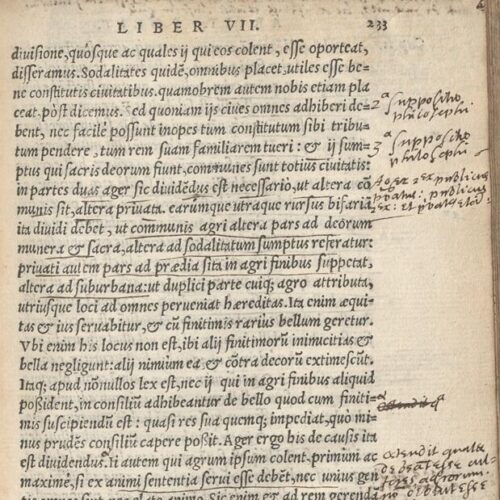 LIBER VII. 233
diuisione, quósque ac quales ij qui eos colent, esse oporteat,
disseramus. Sodalitates quidē, omnibus placet, utiles esse be-
ne constitutis ciuitatibus. quamobrem autem nobis etiam pla
ceat, pòst dicemus. Sed quoniam ijs ciues omnes adhiberi de-
bent, nec facilè possunt inopes tum constitutum sibi tribu-
tum pendere, tum rem suam familiarem tueri: & ij sum-
ptus qui sacris deorum fiunt, communes sunt totius ciuitatis:
in partes duas ager sic diuidēdus est necessariò, ut altera cō
munis sit, altera priuata. earúmque utraque rursus bifaria
ita diuidi debet, ut communis agri altera pars ad deorum
munera & sacra, altera ad sodalitatum sumptus referatur:
priuati autem pars ad prædia sita in agri finibus suppetat,
altera ad suburbana: ut duplici parte cuiq; agro attributa,
utriusque loci ad omnes perueniat hæreditas. Ita enim æqui-
tas & ius seruabitur, & cū finitimis rarius bellum geretur.
Vbi enim his locus non est, ibi alij finitimorū inimicitias &
bella negligunt: alij nimium ea & cōtra decorū extimescūt.
Itaq; apud nōnullos lex est, nec ij qui in agri finibus aliquid
possident, in consiliū adhibeantur de bello quod cum finiti-
mis suscipiendū est: quasi res sua quemq; impediat, quò mi-
nus prudēs consiliū capere possit. Ager ergo his de causis ita
est diuidendus. Ii autem qui agrum ipsum colent, primùm ac
maximè, si ex animi sententia serui esse debēt, nec unius gen
2ª suppositio
philosophi
3ª suppositio
philosophi
ostendit quales